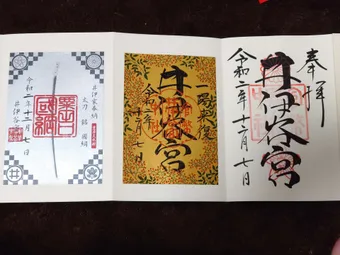 奉拝
井伊谷宮
令和二年十二月七日
一陽来復
井伊谷宮
令和二年
十二月七日
井伊家奉納
太刀 銘 國綱
令和二年十二月七日
井伊谷宮